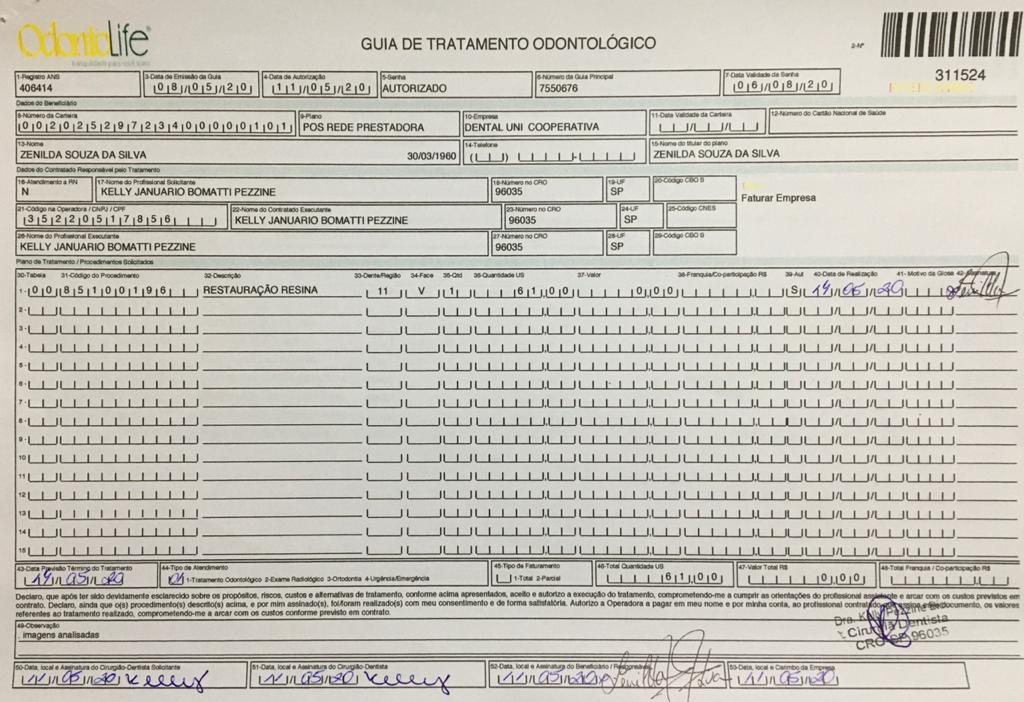 OdontoLife
GUIA DE TRATAMENTO ODONTOLÓGICO
2-Nº
311524
1-Registro ANS 3-Data de Emissão da Guia 4-Data de Autorização 5-Senha 6-Número da Guia Principal 7-Data Validade da Senha
406414 08/05/20 11/05/20 AUTORIZADO 7550676 06/08/20
Dados do Beneficiário
8-Número da Carteira 9-Plano 10-Empresa 11-Data Validade da Carteira 12-Número do Cartão Nacional de Saúde
00202529723400000101 POS REDE PRESTADORA DENTAL UNI COOPERATIVA
13-Nome 14-Telefone 15-Nome do titular do plano
ZENILDA SOUZA DA SILVA 30/03/1960 ZENILDA SOUZA DA SILVA
Dados do Contratado Responsável pelo Tratamento
16-Atendimento a RN 17-Nome do Profissional Solicitante 18-Número no CRO 19-UF 20-Código CBO S
N KELLY JANUARIO BOMATTI PEZZINE 96035 SP
Faturar Empresa
21-Código na Operadora / CNPJ / CPF 22-Nome do Contratado Executante 23-Número no CRO 24-UF 25-Código CNES
35220517856 KELLY JANUARIO BOMATTI PEZZINE 96035 SP
26-Nome do Profissional Executante 27-Número no CRO 28-UF 29-Código CBO S
KELLY JANUARIO BOMATTI PEZZINE 96035 SP
Plano de Tratamento / Procedimentos Solicitados
30-Tabela 31-Código do Procedimento 32-Descrição 33-Dente/Região 34-Face 35-Qtd 36-Quantidade US 37-Valor 38-Franquia/Co-participação R$ 39-Aut 40-Data de Realização 41- Motivo da Glosa 42-Assinatura
1- 00 85100196 RESTAURAÇÃO RESINA 11 V 1 61,00 0,00 S 14/05/20
2-
3-
4-
5-
6-
7-
8-
9-
10
11
12
13
14
15
43-Data Previsão Término do Tratamento 44-Tipo de Atendimento 45-Tipo de Faturamento 46-Total Quantidade US 47-Valor Total R$ 48-Total Franquia / Co-participação R$
14/05/20 1-Tratamento Odontológico 2-Exame Radiológico 3-Ortodontia 4-Urgência/Emergência 1-Total 2-Parcial 61,00 0,00
Declaro, que após ter sido devidamente esclarecido sobre os propósitos, riscos, custos e alternativas de tratamento, conforme acima apresentados, aceito e autorizo a execução do tratamento, comprometendo-me a cumprir as orientações do profissional assistente e arcar com os custos previstos em
contrato. Declaro, ainda que o(s) procedimento(s) descrito(s) acima, e por mim assinado(s), foi/foram realizado(s) com meu consentimento e de forma satisfatória. Autorizo a Operadora a pagar em meu nome e por minha conta, ao profissional contratado documento, os valores
referentes ao tratamento realizado, comprometendo-me a arcar com os custos conforme previsto em contrato.
Dra. Kelly Pezzine
Cirurgiã Dentista
CRO SP 96035
49-Observação
imagens analisadas
50-Data, local e Assinatura do Cirurgião-Dentista Solicitante 51-Data, local e Assinatura do Cirurgião-Dentista 52-Data, local e Assinatura do Beneficiário / Responsável 53-Data, local e Carimbo da Empresa
11/05/20 Kelly 11/05/20 Kelly 11/05/20 Zenilda 11/05/20